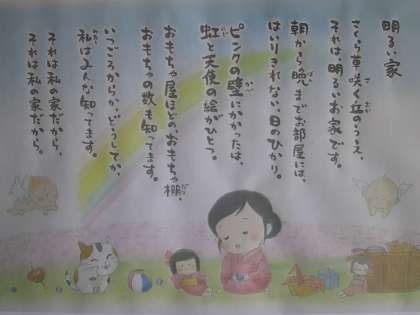 明るい家
さくら草咲く丘のうえ、
それは、明るいお家です。
朝から晩までお部屋には、
はいりきれない、日のひかり。
ピンクの壁にかかったは、
虹と天使の絵がひとつ。
おもちゃ屋ほどの、おもちゃ棚、
おもちゃの数も知ってます。
いつごろからか、どうしてか、
私はみんな知ってます。
それは私の家だから、
それは私の家だから。